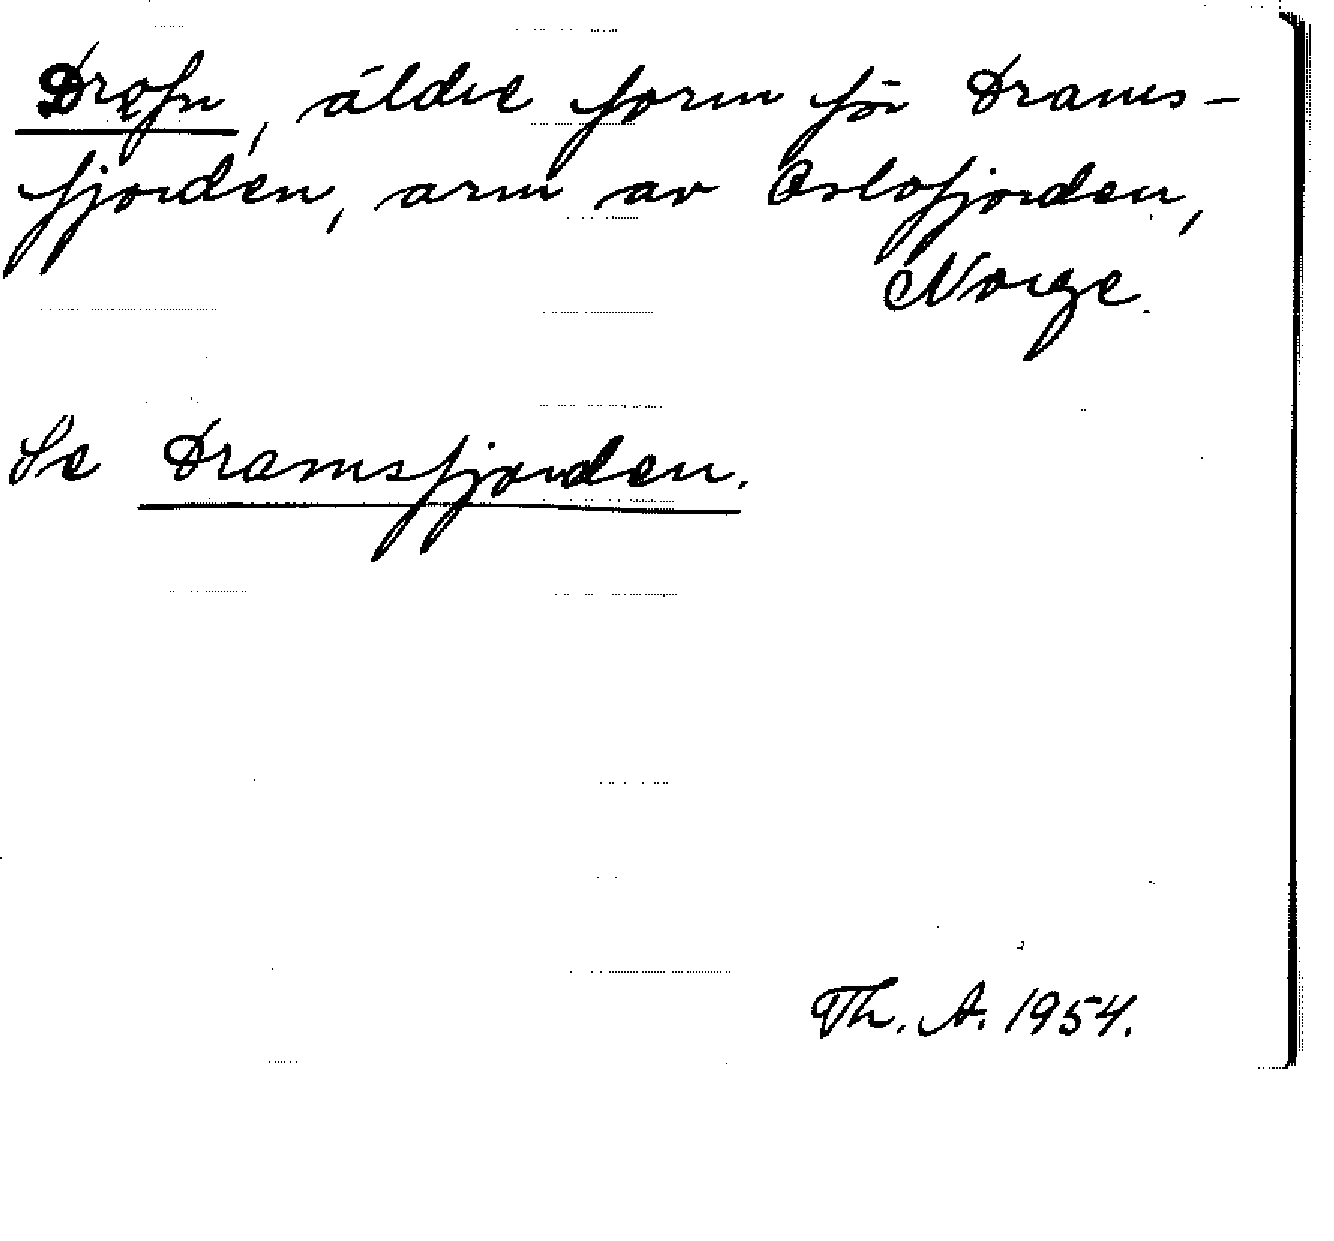 Drǫfn, äldre form för Drams-
fjorden, arm av Oslofjorden,
Norge.
Se Dramsfjorden.
Th. A. 1954.